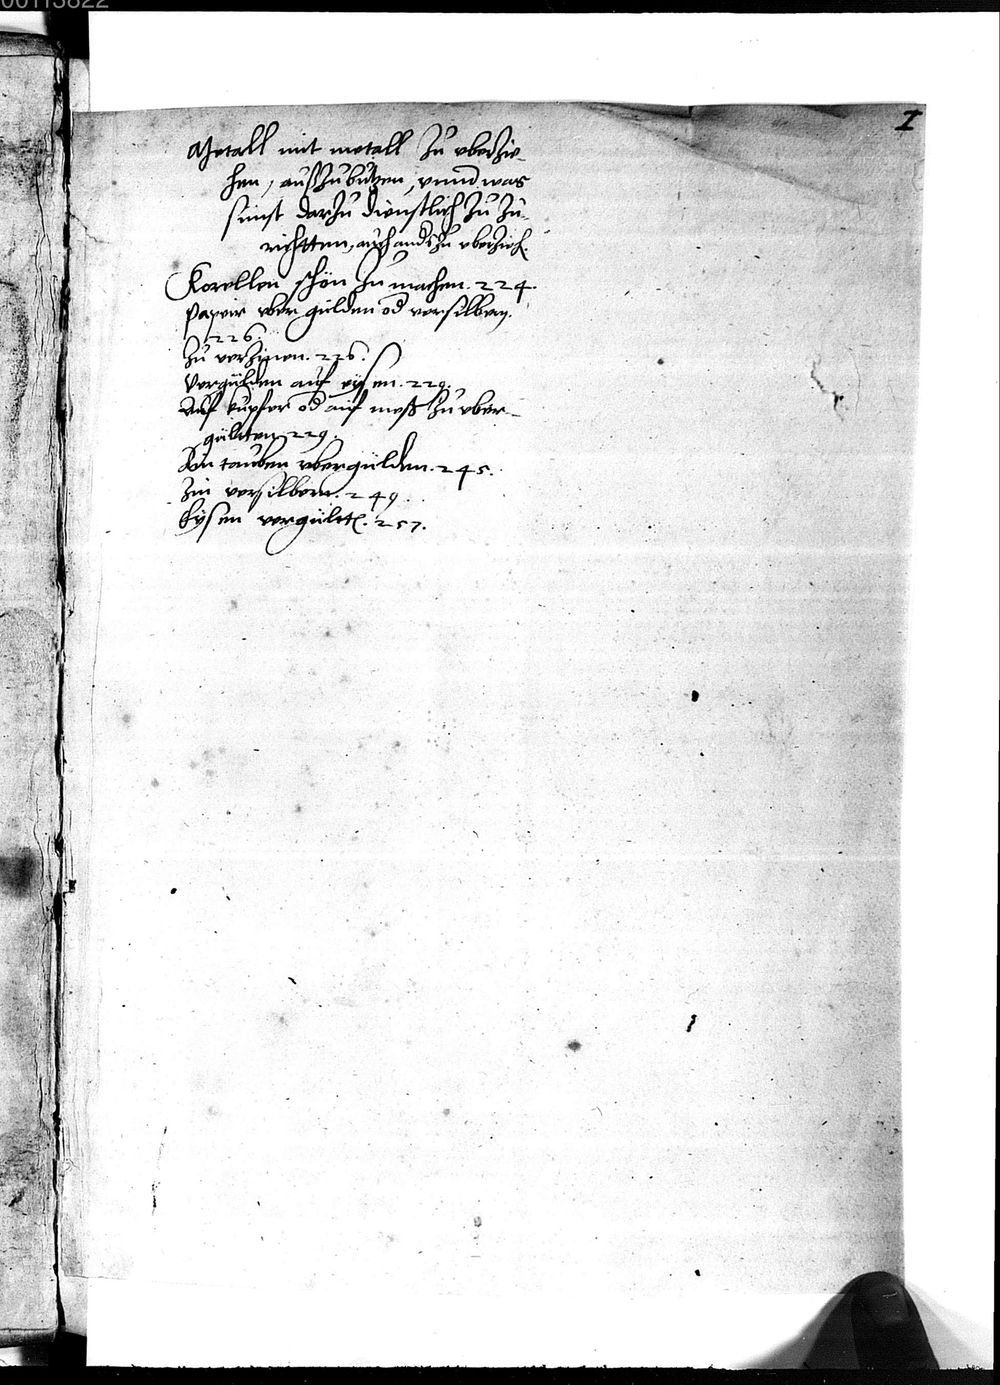 00115822
I
Metall mit metall Zu vberzie-
hen, auß Zu butzen, vnnd was
sunst darZu dienstlich Zu Zu-
richtten, auch anders Zu vberzieh.
Korellen schön Zu machen. 224.
Papeir vber gulden od versilbern.
226.
Zu verzinen. 226.
Vergülden auf eysen. 229.
Auf kupfer od auf meß Zu vber-
gülten 229.
tauben vbergülden. 245.
Zin versilbern. 249.
Eysen vergült. 257.